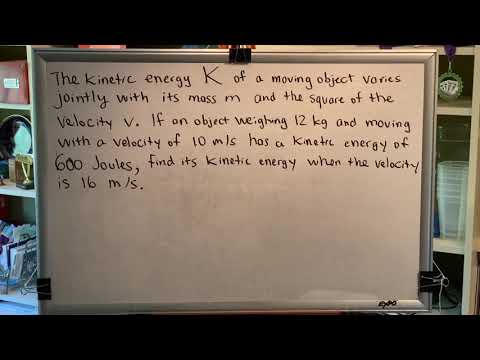 The kinetic energy K of a moving object varies
jointly with its mass m and the square of the
velocity v. If an object weighing 12 kg and moving
with a velocity of 10 m/s has a kinetic energy of
600 Joules, find its kinetic energy when the velocity
is 16 m/s.
EXPO